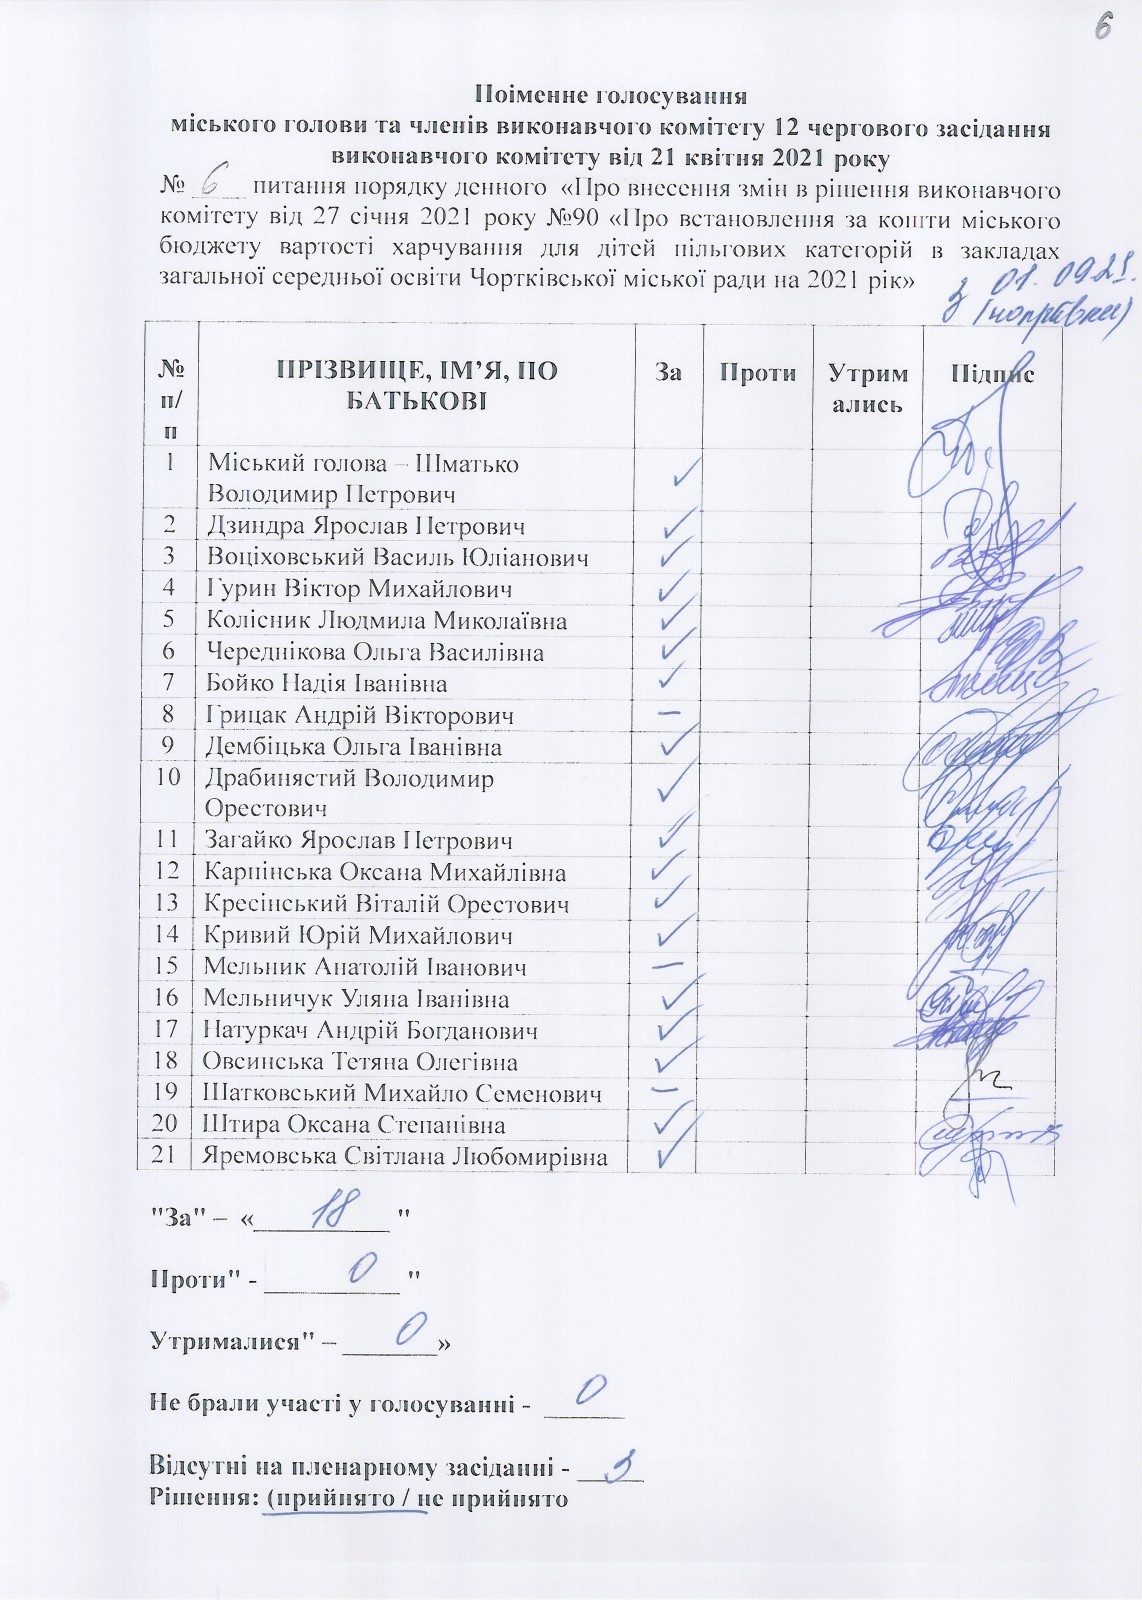 6
Поіменне голосування
міського голови та членів виконавчого комітету 12 чергового засідання
виконавчого комітету від 21 квітня 2021 року
№ 6 питання порядку денного «Про внесення змін в рішення виконавчого
комітету від 27 січня 2021 року №90 «Про встановлення за кошти міського
бюджету вартості харчування для дітей пільгових категорій в закладах
загальної середньої освіти Чортківської міської ради на 2021 рік»
з 01.09.21.
(поправки)
№ п/п ПРІЗВИЩЕ, ІМ’Я, ПО БАТЬКОВІ За Проти Утримались Підпис
1 Міський голова – Шматько
Володимир Петрович ✓
2 Дзиндра Ярослав Петрович ✓
3 Воціховський Василь Юліанович ✓
4 Гурин Віктор Михайлович ✓
5 Колісник Людмила Миколаївна ✓
6 Череднікова Ольга Василівна ✓
7 Бойко Надія Іванівна ✓
8 Грицак Андрій Вікторович –
9 Дембіцька Ольга Іванівна ✓
10 Драбинястий Володимир
Орестович ✓
11 Загайко Ярослав Петрович ✓
12 Карпінська Оксана Михайлівна ✓
13 Кресінський Віталій Орестович ✓
14 Кривий Юрій Михайлович ✓
15 Мельник Анатолій Іванович –
16 Мельничук Уляна Іванівна ✓
17 Натуркач Андрій Богданович ✓
18 Овсинська Тетяна Олегівна ✓
19 Шатковський Михайло Семенович –
20 Штира Оксана Степанівна ✓
21 Яремовська Світлана Любомирівна ✓
"За" – « 18 "
Проти" - 0 "
Утрималися" – 0 »
Не брали участі у голосуванні - 0
Відсутні на пленарному засіданні - 3
Рішення: (прийнято / не прийнято